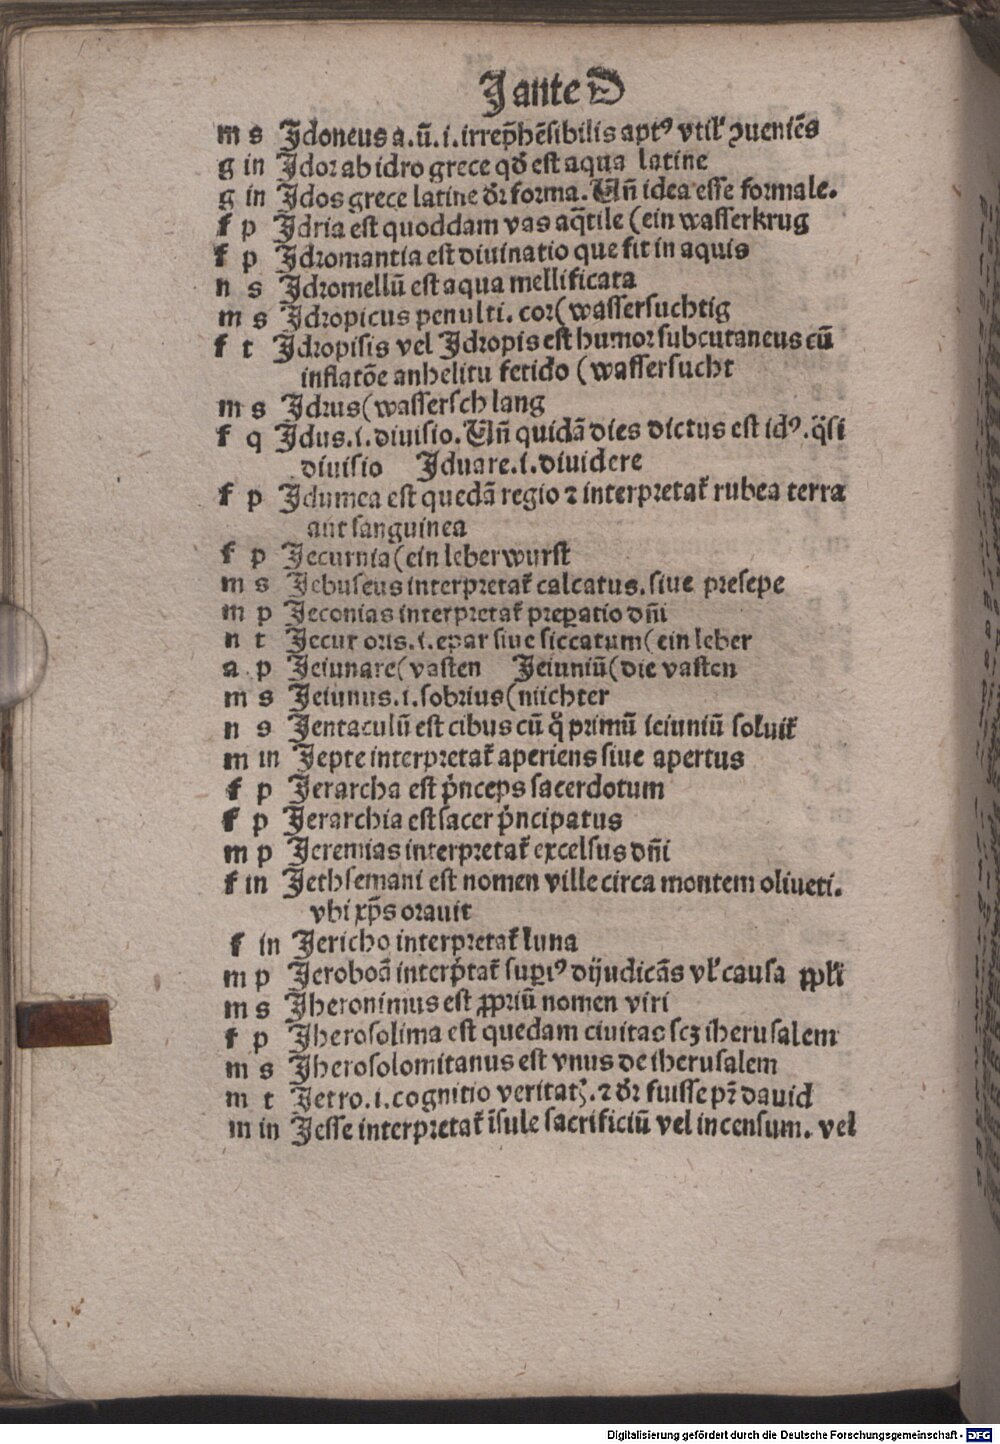 J ante D
m s Jdoneus a.ū.i.irrep̄hēsibilis aptꝰ vtil' ꝯueniēs
g in Jdor ab idro grece qd̄ est aqua latine
g in Jdos grece latine dr̄ forma. Vn̄ idea esse formale.
f p Jdria est quoddam vas aq̄tile (ein wasserkrug
f p Jdromantia est diuinatio que fit in aquis
n s Jdromellū est aqua mellificata
m s Jdropicus penulti. cor( wassersuchtig
f t Jdropisis vel Jdropis est humor subcutaneus cū
inflatōe anhelitu fetido (wassersucht
m s Jdrus(wasserschlang
f q Jdus.i.diuisio. Vn̄ quidā dies dictus est idꝰ.q̄si
diuisio Jduare.i.diuidere
f p Jdumea est quedā regio ⁊ interpretat᷑ rubea terra
aut sanguinea
f p Jecurnia(ein leberwurst
m s Jebuseus interpretat᷑ calcatus. siue presepe
m p Jeconias interpretat᷑ prepatio dn̄i
n t Jecur oris.i.epar siue siccatum(ein leber
a p Jeiunare(vasten Jeiuniū(die vasten
m s Jeiunus.i.sobrius(niichter
n s Jentaculū est cibus cū q̄ primū ieiuniū soluit᷑
m in Jepte interpretat᷑ aperiens siue apertus
f p Jerarcha est p̄nceps sacerdotum
f p Jerarchia est sacer p̄ncipatus
m p Jeremias interpretat᷑ excelsus dn̄i
f in Jethsemani est nomen ville circa montem oliueti.
vbi xp̄s orauit
f in Jericho interpretat᷑ luna
m p Jeroboā interp̄tat᷑ supiꝰ dijudicās vl' causa ppl'i
m s Jheronimus est ꝓpriū nomen viri
f p Jherosolima est quedam ciuitas scꝫ iherusalem
m s Jherosolomitanus est vnus de iherusalem
m t Jetro.i.cognitio veritatꝭ.⁊ dr̄ fuisse pr̄ dauid
m in Jesse interpretat᷑ īsule sacrificiū vel incensum. vel
Digitalisierung gefördert durch die Deutsche Forschungsgemeinschaft - DFG